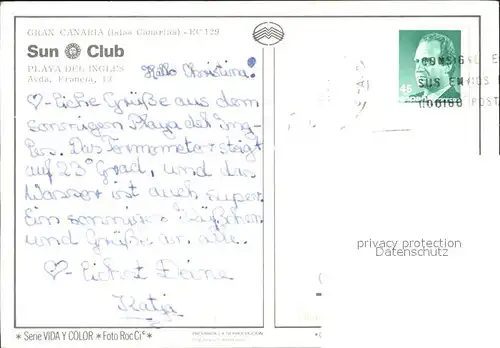 GRAN CANARIA (Islas Canarias) - EC 129
Sun Club
PLAYA DEL INGLES
Avda. Francia, 12
Hallo Christina!
♡-liche Grüße aus dem
sonnigen Playa del Ing-
les. Das Termometer steigt
auf 23° Grad, und das
Wasser ist auch super.
Ein sonniges
und Grüße an alle.
♡-lichst Deine
Katja
* Serie VIDA Y COLOR * Foto Roc Cía *
PROHIBIDA LA REPRODUCCIÓN
45
CONSIGNE E
SUS ENVIOS
CODIGO POST
privacy protection
Datenschutz